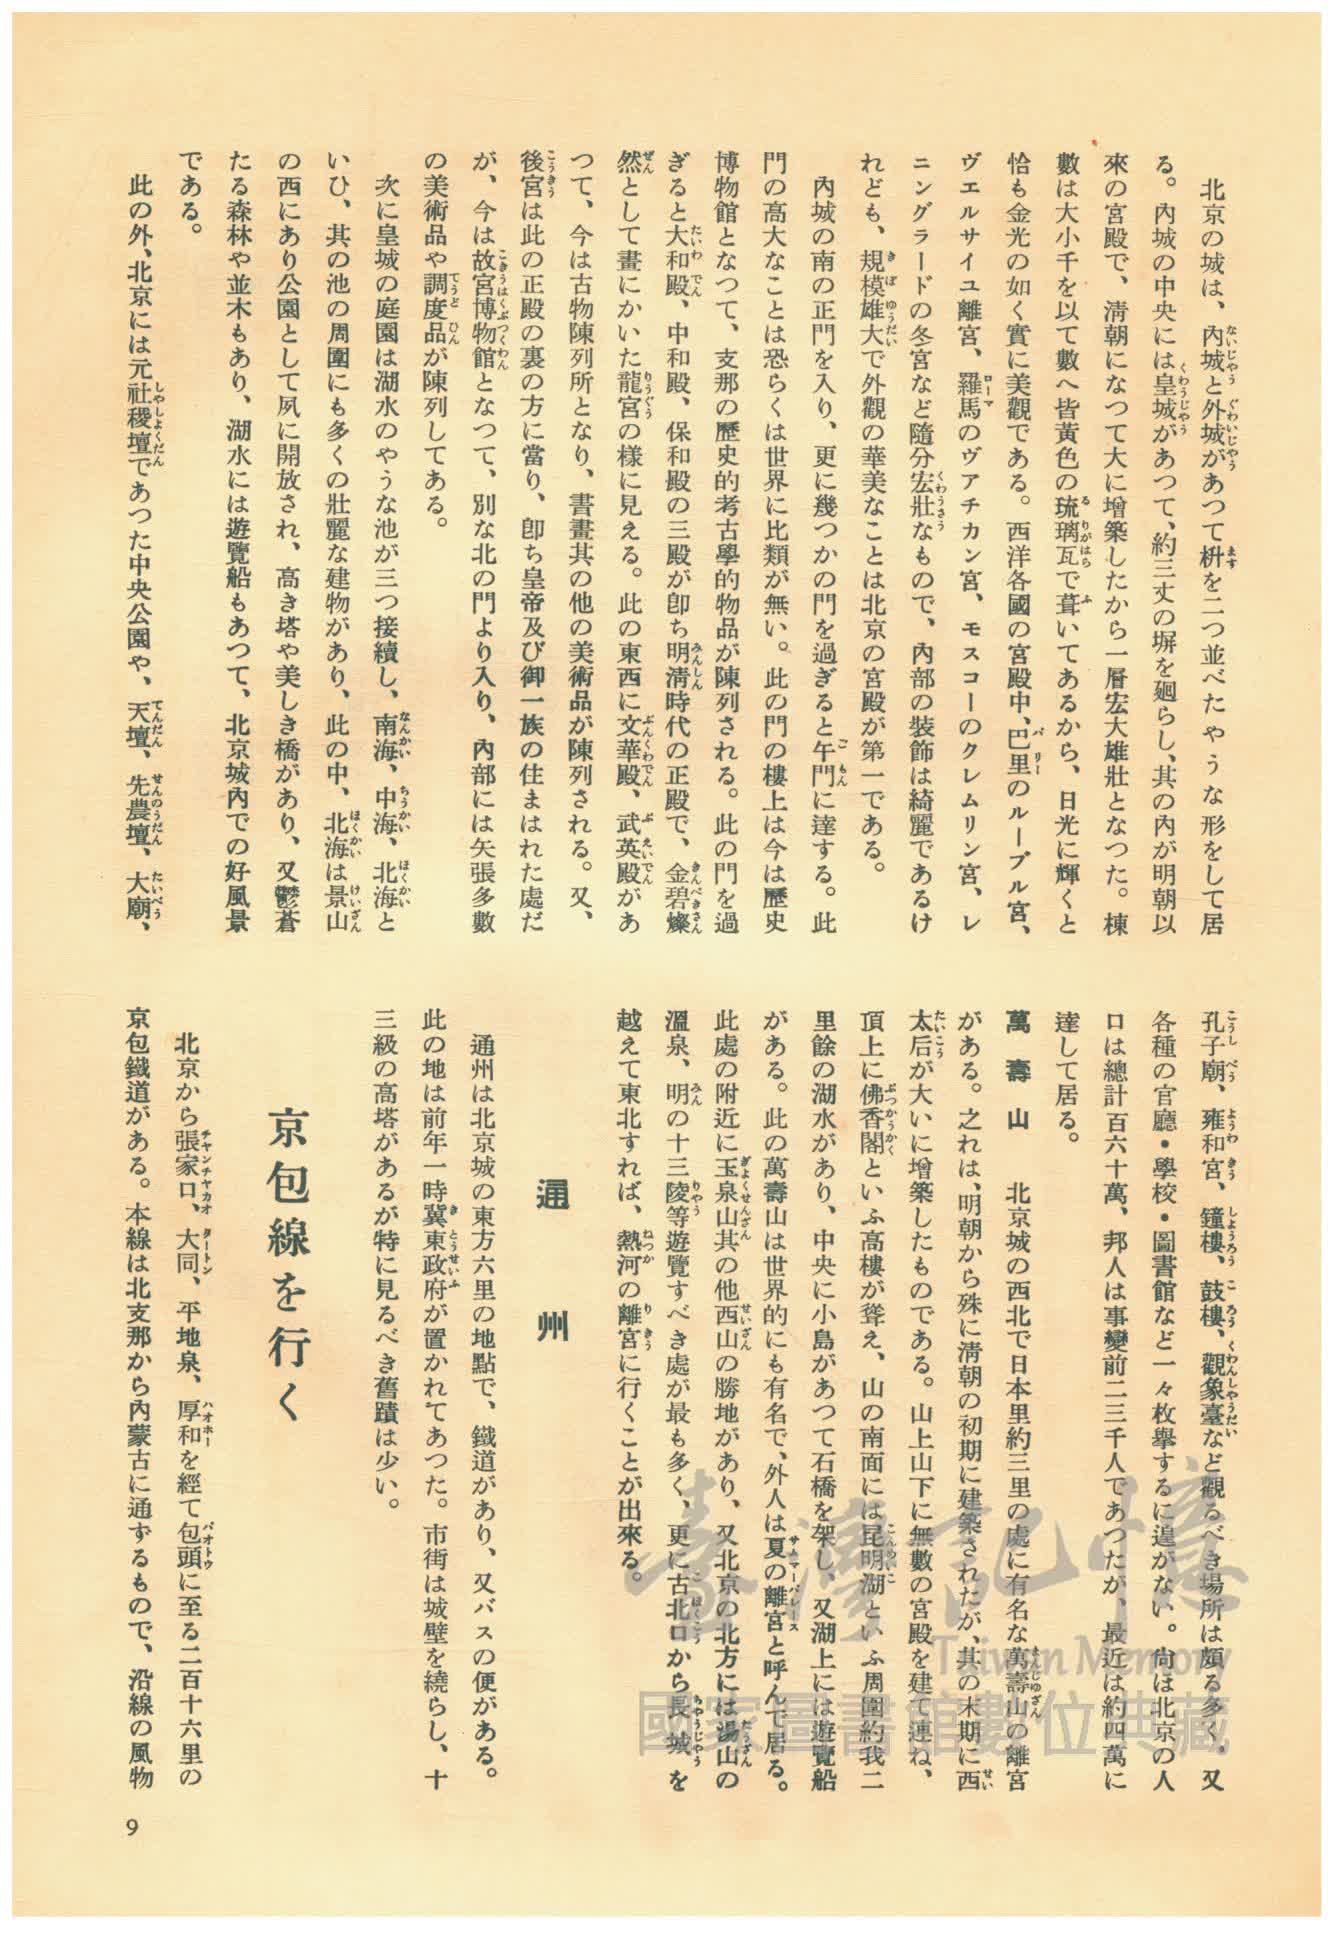 北京の城は、內城と外城があつて枡を二つ並べたやうな形をして居
る。內城の中央には皇城があつて、約三丈の塀を廻らし、其の內が明朝以
來の宮殿で、淸朝になつて大に增築したから一層宏大雄壯となつた。棟
數は大小千を以て數へ皆黃色の琉璃瓦で葺いてあるから、日光に輝くと
恰も金光の如く實に美觀である。西洋各國の宮殿中、巴里のルーブル宮、
ヴエルサイユ離宮、羅馬のヴアチカン宮、モスコーのクレムリン宮、レ
ニングラードの冬宮など隨分宏壯なもので、內部の裝飾は綺麗であるけ
れども、規模雄大で外觀の華美なことは北京の宮殿が第一である。
內城の南の正門を入り、更に幾つかの門を過ぎると午門に達する。此
門の高大なことは恐らくは世界に比類が無い。此の門の樓上は今は歷史
博物館となつて、支那の歷史的考古學的物品が陳列される。此の門を過
ぎると大和殿、中和殿、保和殿の三殿が卽ち明淸時代の正殿で、金碧燦
然として畫にかいた龍宮の樣に見える。此の東西に文華殿、武英殿があ
つて、今は古物陳列所となり、書畫其の他の美術品が陳列される。又、
後宮は此の正殿の裏の方に當り、卽ち皇帝及び御一族の住まはれた處だ
が、今は故宮博物館となつて、別な北の門より入り、內部には矢張多數
の美術品や調度品が陳列してある。
次に皇城の庭園は湖水のやうな池が三つ接續し、南海、中海、北海と
いひ、其の池の周圍にも多くの壯麗な建物があり、此の中、北海は景山
の西にあり公園として夙に開放され、高き塔や美しき橋があり、又鬱蒼
たる森林や並木もあり、湖水には遊覽船もあつて、北京城內での好風景
である。
此の外、北京には元社稷壇であつた中央公園や、天壇、先農壇、大廟、
孔子廟、雍和宮、鐘樓、鼓樓、觀象臺など觀るべき場所は頗る多く、又
各種の官廳・學校・圖書館など一々枚擧するに遑がない。尙は北京の人
口は總計百六十萬、邦人は事變前二三千人であつたが、最近は約四萬に
達して居る。
萬壽山　北京城の西北で日本里約三里の處に有名な萬壽山の離宮
がある。之れは、明朝から殊に淸朝の初期に建築されたが、其の末期に西
太后が大いに增築したものである。山上山下に無數の宮殿を建て連ね、
頂上に佛香閣といふ高樓が聳え、山の南面には昆明湖といふ周圍約我二
里餘の湖水があり、中央に小島があつて石橋を架し、又湖上には遊覽船
がある。此の萬壽山は世界的にも有名で、外人は夏の離宮と呼んで居る。
此處の附近に玉泉山其の他西山の勝地があり、又北京の北方には湯山の
溫泉、明の十三陵等遊覽すべき處が最も多く、更に古北口から長城を
越えて東北すれば、熱河の離宮に行くことが出來る。
通州
通州は北京城の東方六里の地點で、鐵道があり、又バスの便がある。
此の地は前年一時冀東政府が置かれてあつた。市街は城壁を繞らし、十
三級の高塔があるが特に見るべき舊蹟は少い。
京包線を行く
北京から張家口、大同、平地泉、厚和を經て包頭に至る二百十六里の
京包鐵道がある。本線は北支那から內蒙古に通ずるもので、沿線の風物
9
臺灣記憶
Taiwan Memory
國家圖書館數位典藏